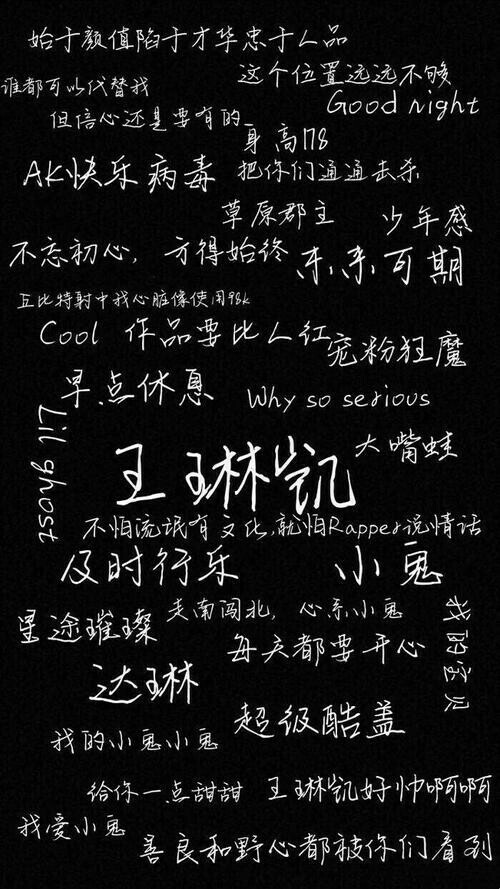 始于颜值陷于才华忠于人品
这个位置远远不够
谁都可以代替我
Good night
但信心还是要有的
身高178
AK快乐病毒
把你们通通击杀
草原郡主
少年感
不忘初心，方得始终
未来可期
丘比特射中我心脏像使用98k
Cool
作品要比人红
宠粉狂魔
早点休息
Why so serious
Lil ghost
大嘴蛙
王琳凯
不怕流氓有文化,就怕Rapper说情话
及时行乐
小鬼
星途璀璨
走南闯北，心系小鬼
我的宝贝
每天都要开心
达琳
超级酷盖
我的小鬼小鬼
给你一点甜甜
王琳凯好帅啊啊
我爱小鬼
善良和野心都被你们看到